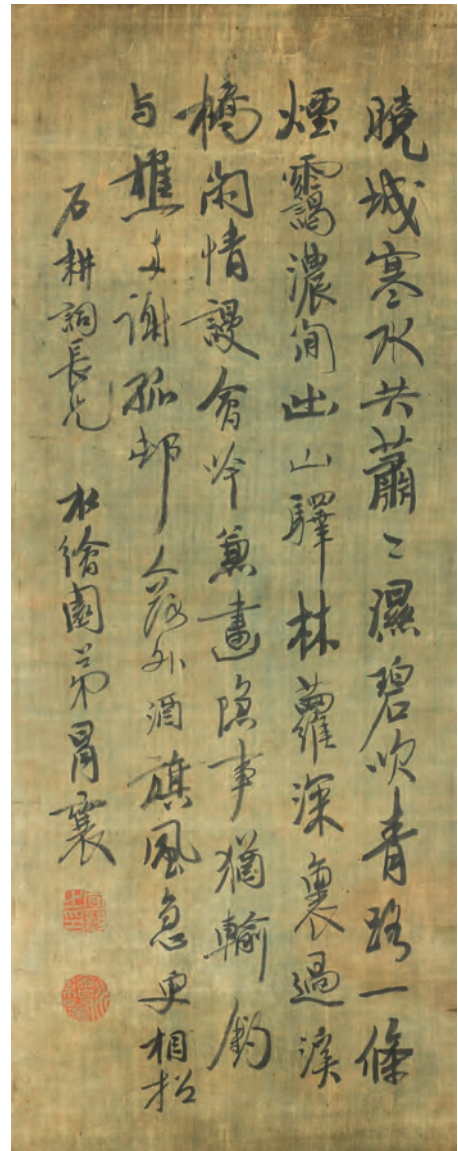 曉城寒水共蕭〻濕碧吹青路一條
煙靄濃間出山驛林蘿深裏過溪
橋閑情謾會吟兼畫隐事猶輸釣
与樵多謝孤邨人落外酒旗風急更相招
石耕詞長兄 水繪園弟冒襄